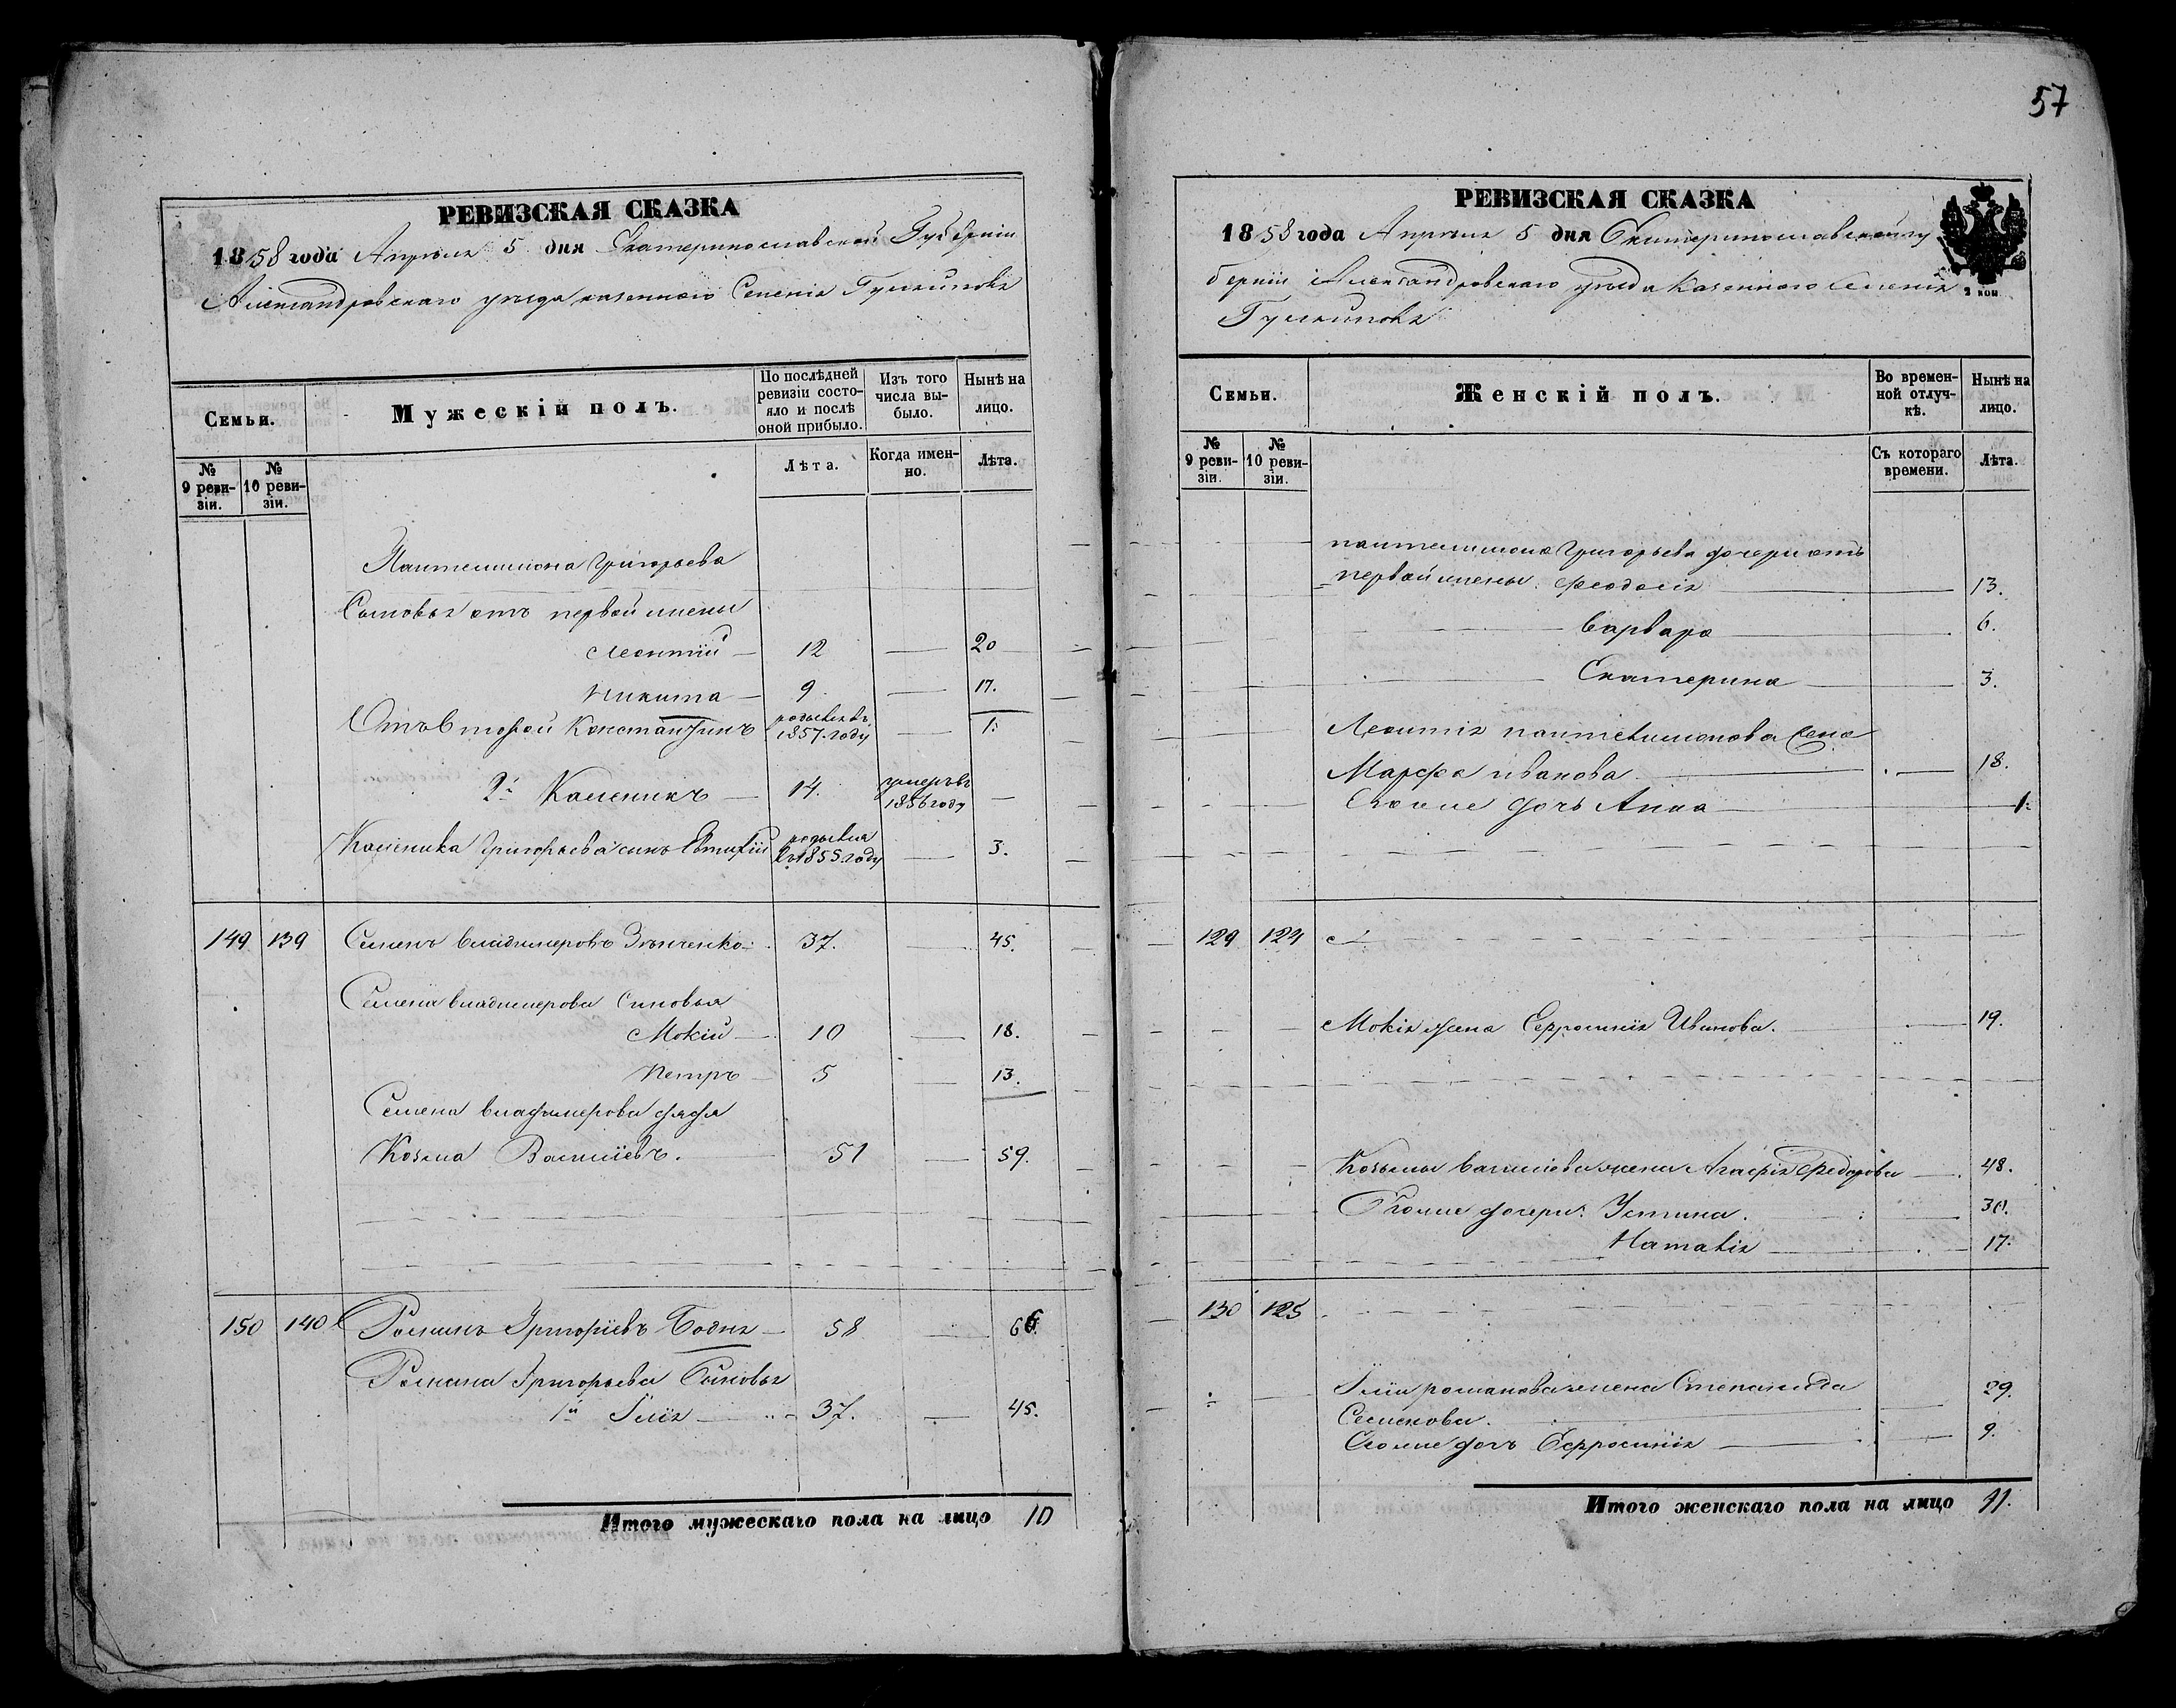 РЕВИЗСКАЯ СКАЗКА
1858 года Апреля 5 дня Екатеринославской Губерніи
Александровскаго уезда казеннаго Селенія
Семьи.
Мужескій полъ.
По послѣдней ревизіи состояло и послѣ оной прибыло.
Изъ того числа выбыло.
Нынѣ на лицо.
№ 9 ревизіи.
№ 10 ревизіи.
Лѣта.
Когда именно.
Лѣта.
Пантелимона Григорьева
Сыновья отъ первой жены
Леонтій 12 — 20
Никита — 9 — 17.
Отъ второй Константинъ родився въ 1857. году — 1.
2й Каленикъ — 14. умеръ въ 1856 году —
Каленика Григорьева сынъ Евтихій родывся въ 1855 году — 3.
149 139 Семенъ Владимеровъ 37. — 45.
Семена Владимерова Синовья
Мокій — 10 — 18.
Петръ — 5 — 13.
Семена Владимерова дядя
Козьма Василіевъ. 51 — 59.
150 140 Романъ Григоріевъ Бодня — 58 — 66.
Романа Григорьева Сыновья
1й Илія — 37. — 45.
Итого мужескаго пола на лицо 10
57
РЕВИЗСКАЯ СКАЗКА
1858 года Апреля 5 дня Екатеринославской гу
берніи Александровскаго уезда Казеннаго Селенія
2 коп
Семьи.
Женскій полъ.
Во временной отлучкѣ.
Нынѣ на лицо.
№ 9 ревизіи.
№ 10 ревизіи.
Съ котораго времени.
Лѣта.
Пантелимона Григорьева дочери отъ
первой жены Феодосія — 13.
Варвара — 6.
Екатерина — 3.
Леонтія Пантелимонова Жена
Марфа Иванова — 18.
Ее же дочь Анна — 1.
129 124
Мокія жена Ефросинія Иванова. — 19.
Козьмы Василіева жена Агафія Федорова — 48.
Его же дочери: Устина. — 30.
Наталія — 17.
130 125
Іліи Романова жена Степанида
Семенова. — 29.
Его же дочь Ефросинія — 9.
Итого женскаго пола на лицо 11.